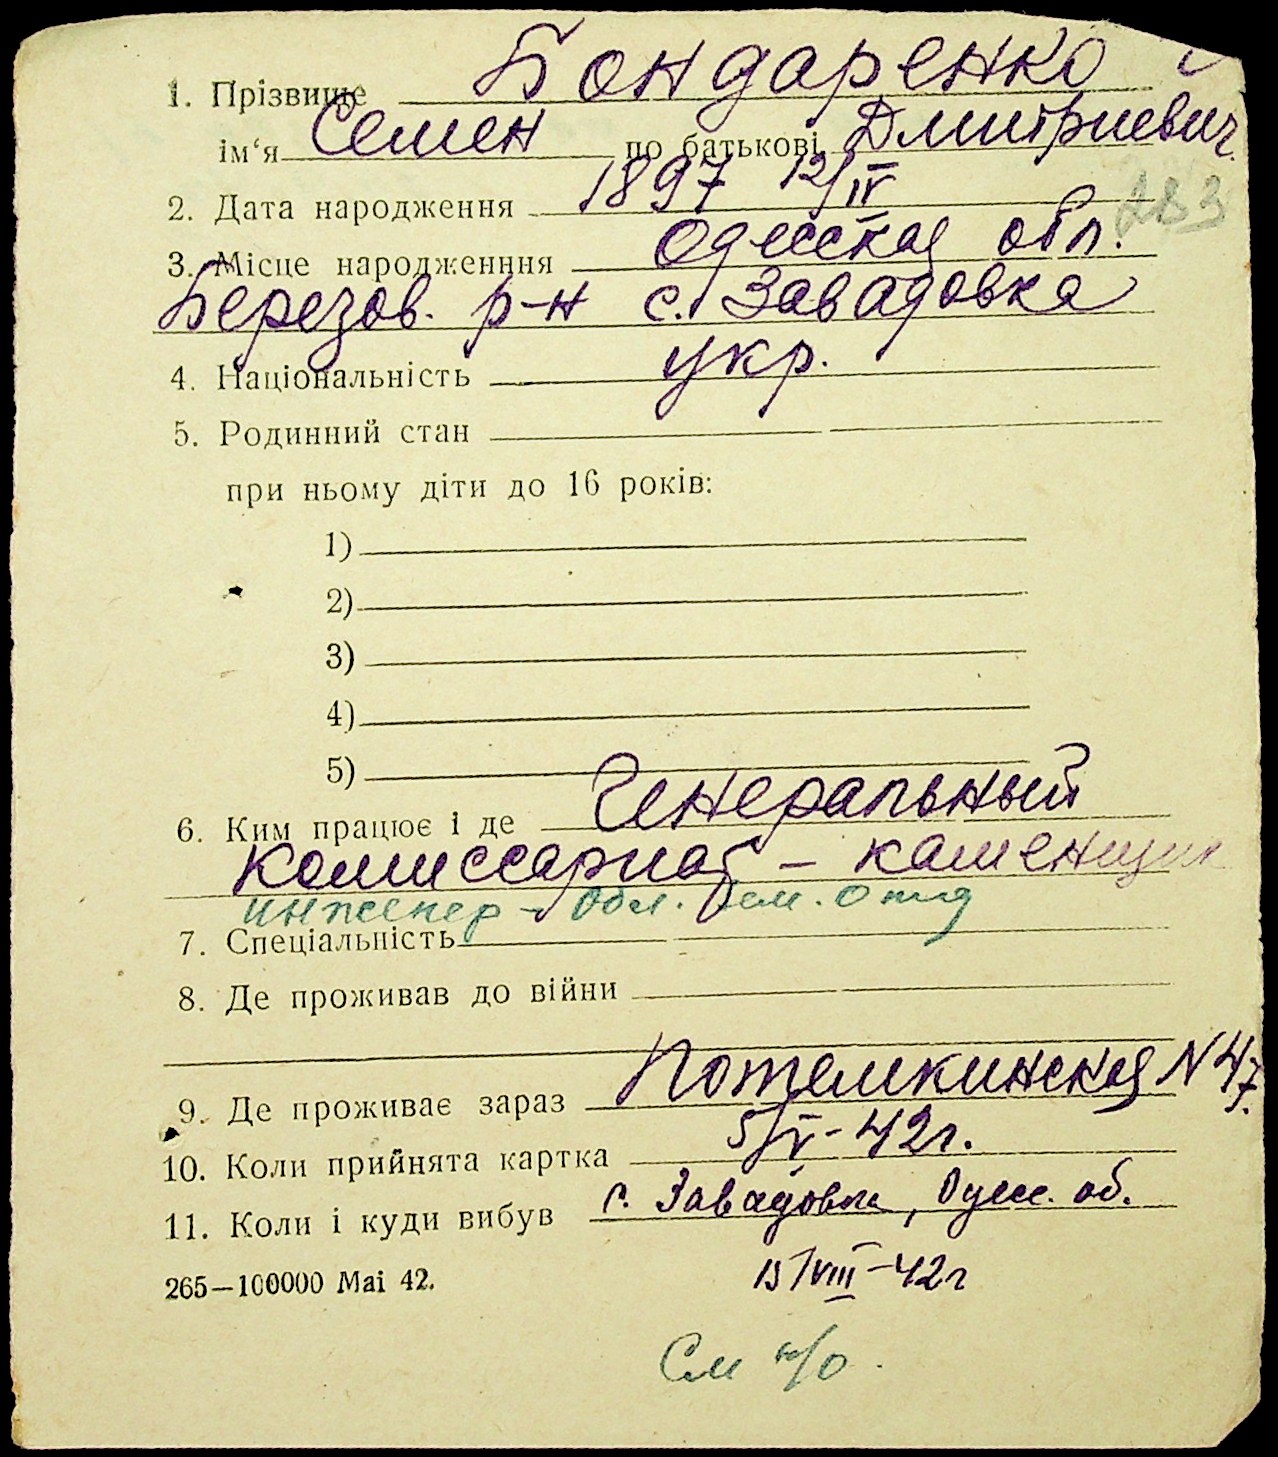 1. Прізвище Бондаренко
ім‘я Семен по батькові Дмитриевич
2. Дата народження 1897 12/IV
283
3. Місце народженння Одесская обл.
Березов. р-н с. Завадовка
4. Національність укр.
5. Родинний стан
при ньому діти до 16 років:
1)
2)
3)
4)
5)
6. Ким працює і де Генеральный
Комиссариат – каменщик
инженер – Обл. Зем. Отд
7. Спеціальність
8. Де проживав до війни
9. Де проживає зараз Потемкинская N 47.
10. Коли прийнята картка 5/V-42г.
11. Коли і куди вибув с. Завадовка, Одесс. об.
265—100000 Маі 42. 15/VIII-42г
См н/о.